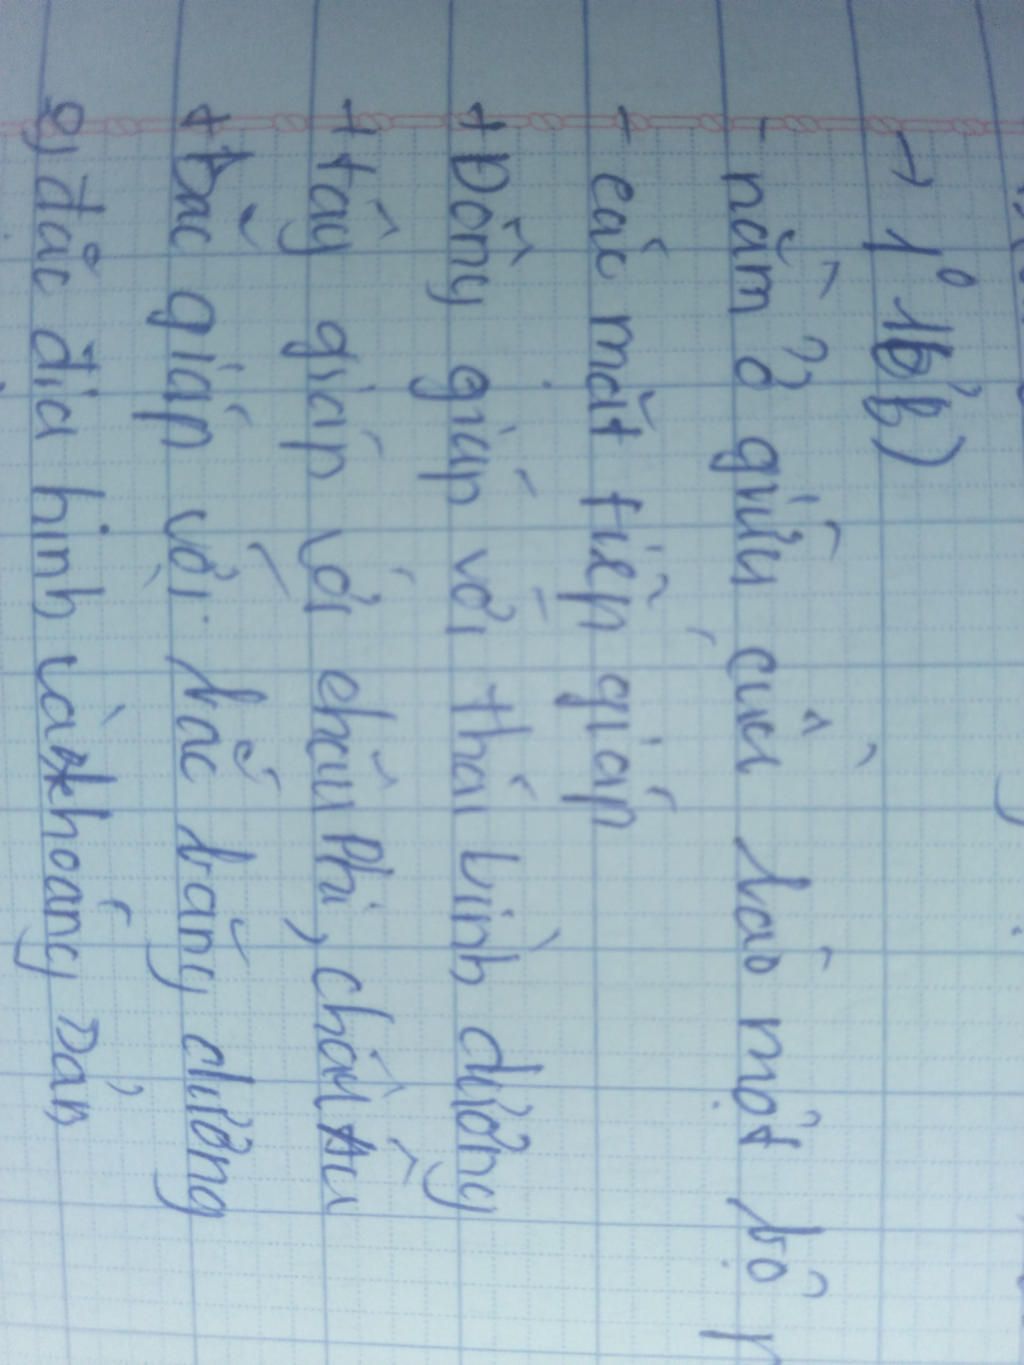 → 1° 16')
- nằm ở giữa cầu bảo một bộ
- các mặt tiếp giáp
+ Đông giáp với thái bình dương
+ tây giáp với châu Phi, châu Âu
+ Bắc giáp với bắc băng dương
đặc địa hình và khoáng sản